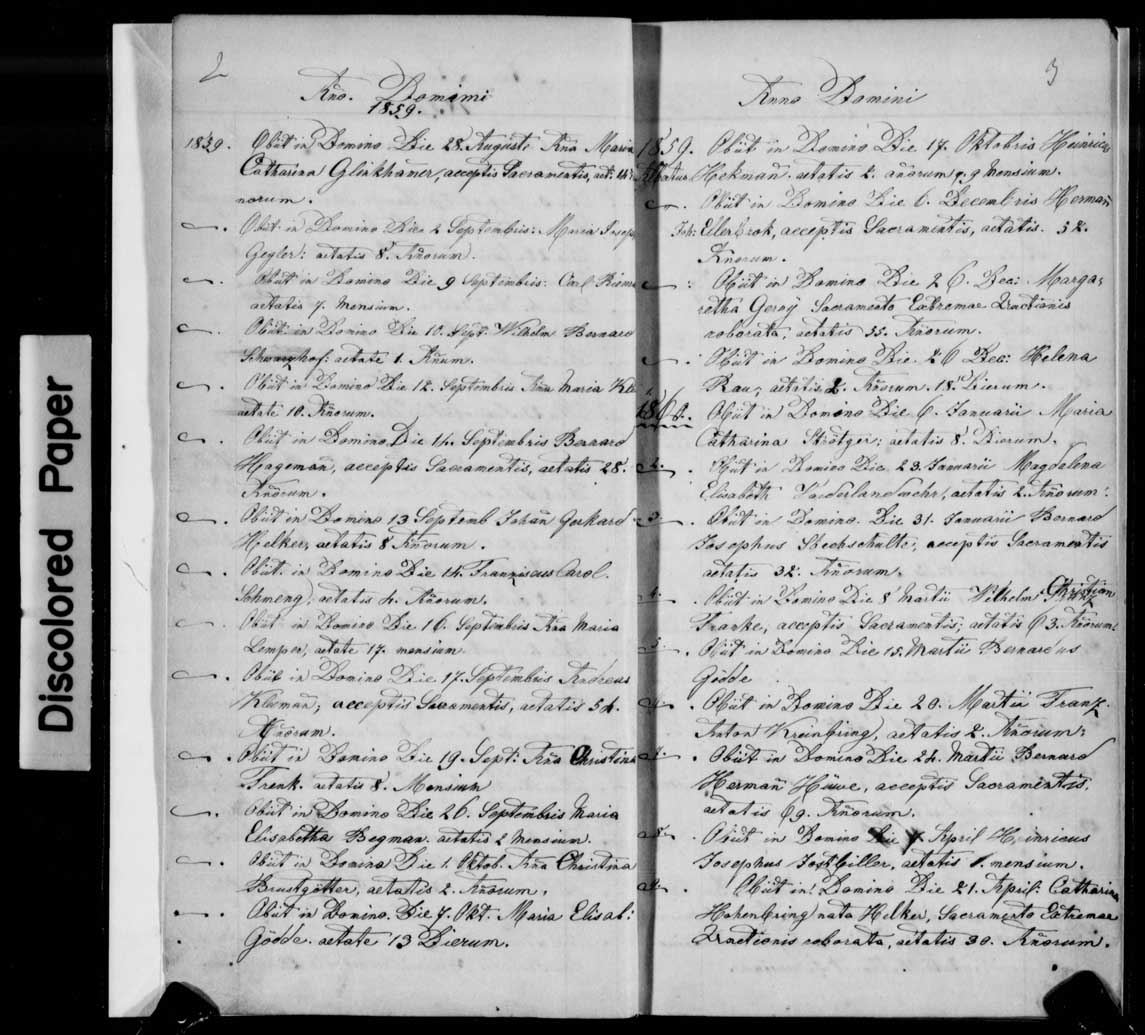 Discolored Paper
2
Año. Domini
1859.
1859. Obiit in Domino Die 28. Augusti Aña Maria
Catharina Glinkhamer, acceptis Sacramentis, aet: 14 añ
norum.
Obiit in Domino Die 2 Septembris: Maria Joseph
Gegler: aetatis 8. Añorum.
Obiit in Domino Die 9 Septembris: Carl
aetatis 7. Mensium.
Obiit in Domino Die 10. Sept: Wilhelm Bernard
Schwarzhof: aetate 1. Añum.
Obiit in Domino Die 12. Septembris Aña Maria
aetate 10. Añorum.
Obiit in Domino Die 14. Septembris Bernard
Hagemañ, acceptis Sacramentis, aetatis 28.
Añorum.
Obiit in Domino 13 Septemb Johañ Gerhard
Helker, aetatis 8 Añorum.
Obiit in Domino Die 14. Franziscus Carol.
Schmeng, aetatis 4. Añorum.
Obiit in Domino Die 16. Septembris Aña Maria
Lemper, aetate 17. mensium
Obiit in Domino Die 17. Septembris Andreas
Klesmañ, acceptis Sacramentis, aetatis 54.
Añorum.
Obiit in Domino Die 19. Sept: Aña Christina
Frenk. aetatis 8. Mensium
Obiit in Domino Die 26. Septembris Maria
Elisabetha Begman. aetatis 2 mensium.
Obiit in Domino Die 1. Oktob. Aña Christina
Brustgötter, aetatis 2. Añorum.
Obiit in Domino. Die 7. Okt. Maria Elisab:
Gödde. aetate 13 Dierum.
3
Anno Domini
1859. Obiit in Domino Die 17. Oktobris Heinricus
Hekmañ. aetatis 2. añorum 9 Mensium.
Obiit in Domino Die 6. Decembris Hermañ
Joh: Eilerbrok, acceptis Sacramentis, aetatis. 52.
Añorum.
Obiit in Domino Die 26. Dec: Marga-
retha Geröy Sacramento Extremae Unctionis
roborata, aetatis 35. Añorum.
Obiit in Domino Die 26 Dec: Helena
Rau, aetatis 2. Añorum. 18. Dierum.
1860. Obiit in Domino Die 6. Januarii Maria
Catharina Strötger; aetatis 8. Dierum.
2. Obiit in Domino Die 23. Januarii Magdalena
Elisabeth Vorderlandwehr, aetatis 2. Añorum:
3. Obiit in Domino. Die 31. Januarii Bernard
Josephus Stechschulte, acceptis Sacramentis
aetatis 32. Añorum.
4. Obiit in Domino Die 8 Martii Wilhelm Christian
Franke, acceptis Sacramentis; aetatis 63. Añorum:
5. Obiit in Domino Die 15. Martii Bernardus
Gödde
6. Obiit in Domino Die 20. Martii Franz.
Anton Kreinbring, aetatis 2. Añorum:
7. Obiit in Domino Die 24. Martii Bernard
Hermañ Hüwe, acceptis Sacramentis.
aetatis 69. Añorum.
8. Obiit in Domino Die 7. April Heinricus
Josephus Jostbiller, aetatis 1. mensium.
9. Obiit in Domino Die 21. April: Catharina
Hohenbring nata Helker, Sacramento Extremae
Unctionis roborata, aetatis 30. Añorum.